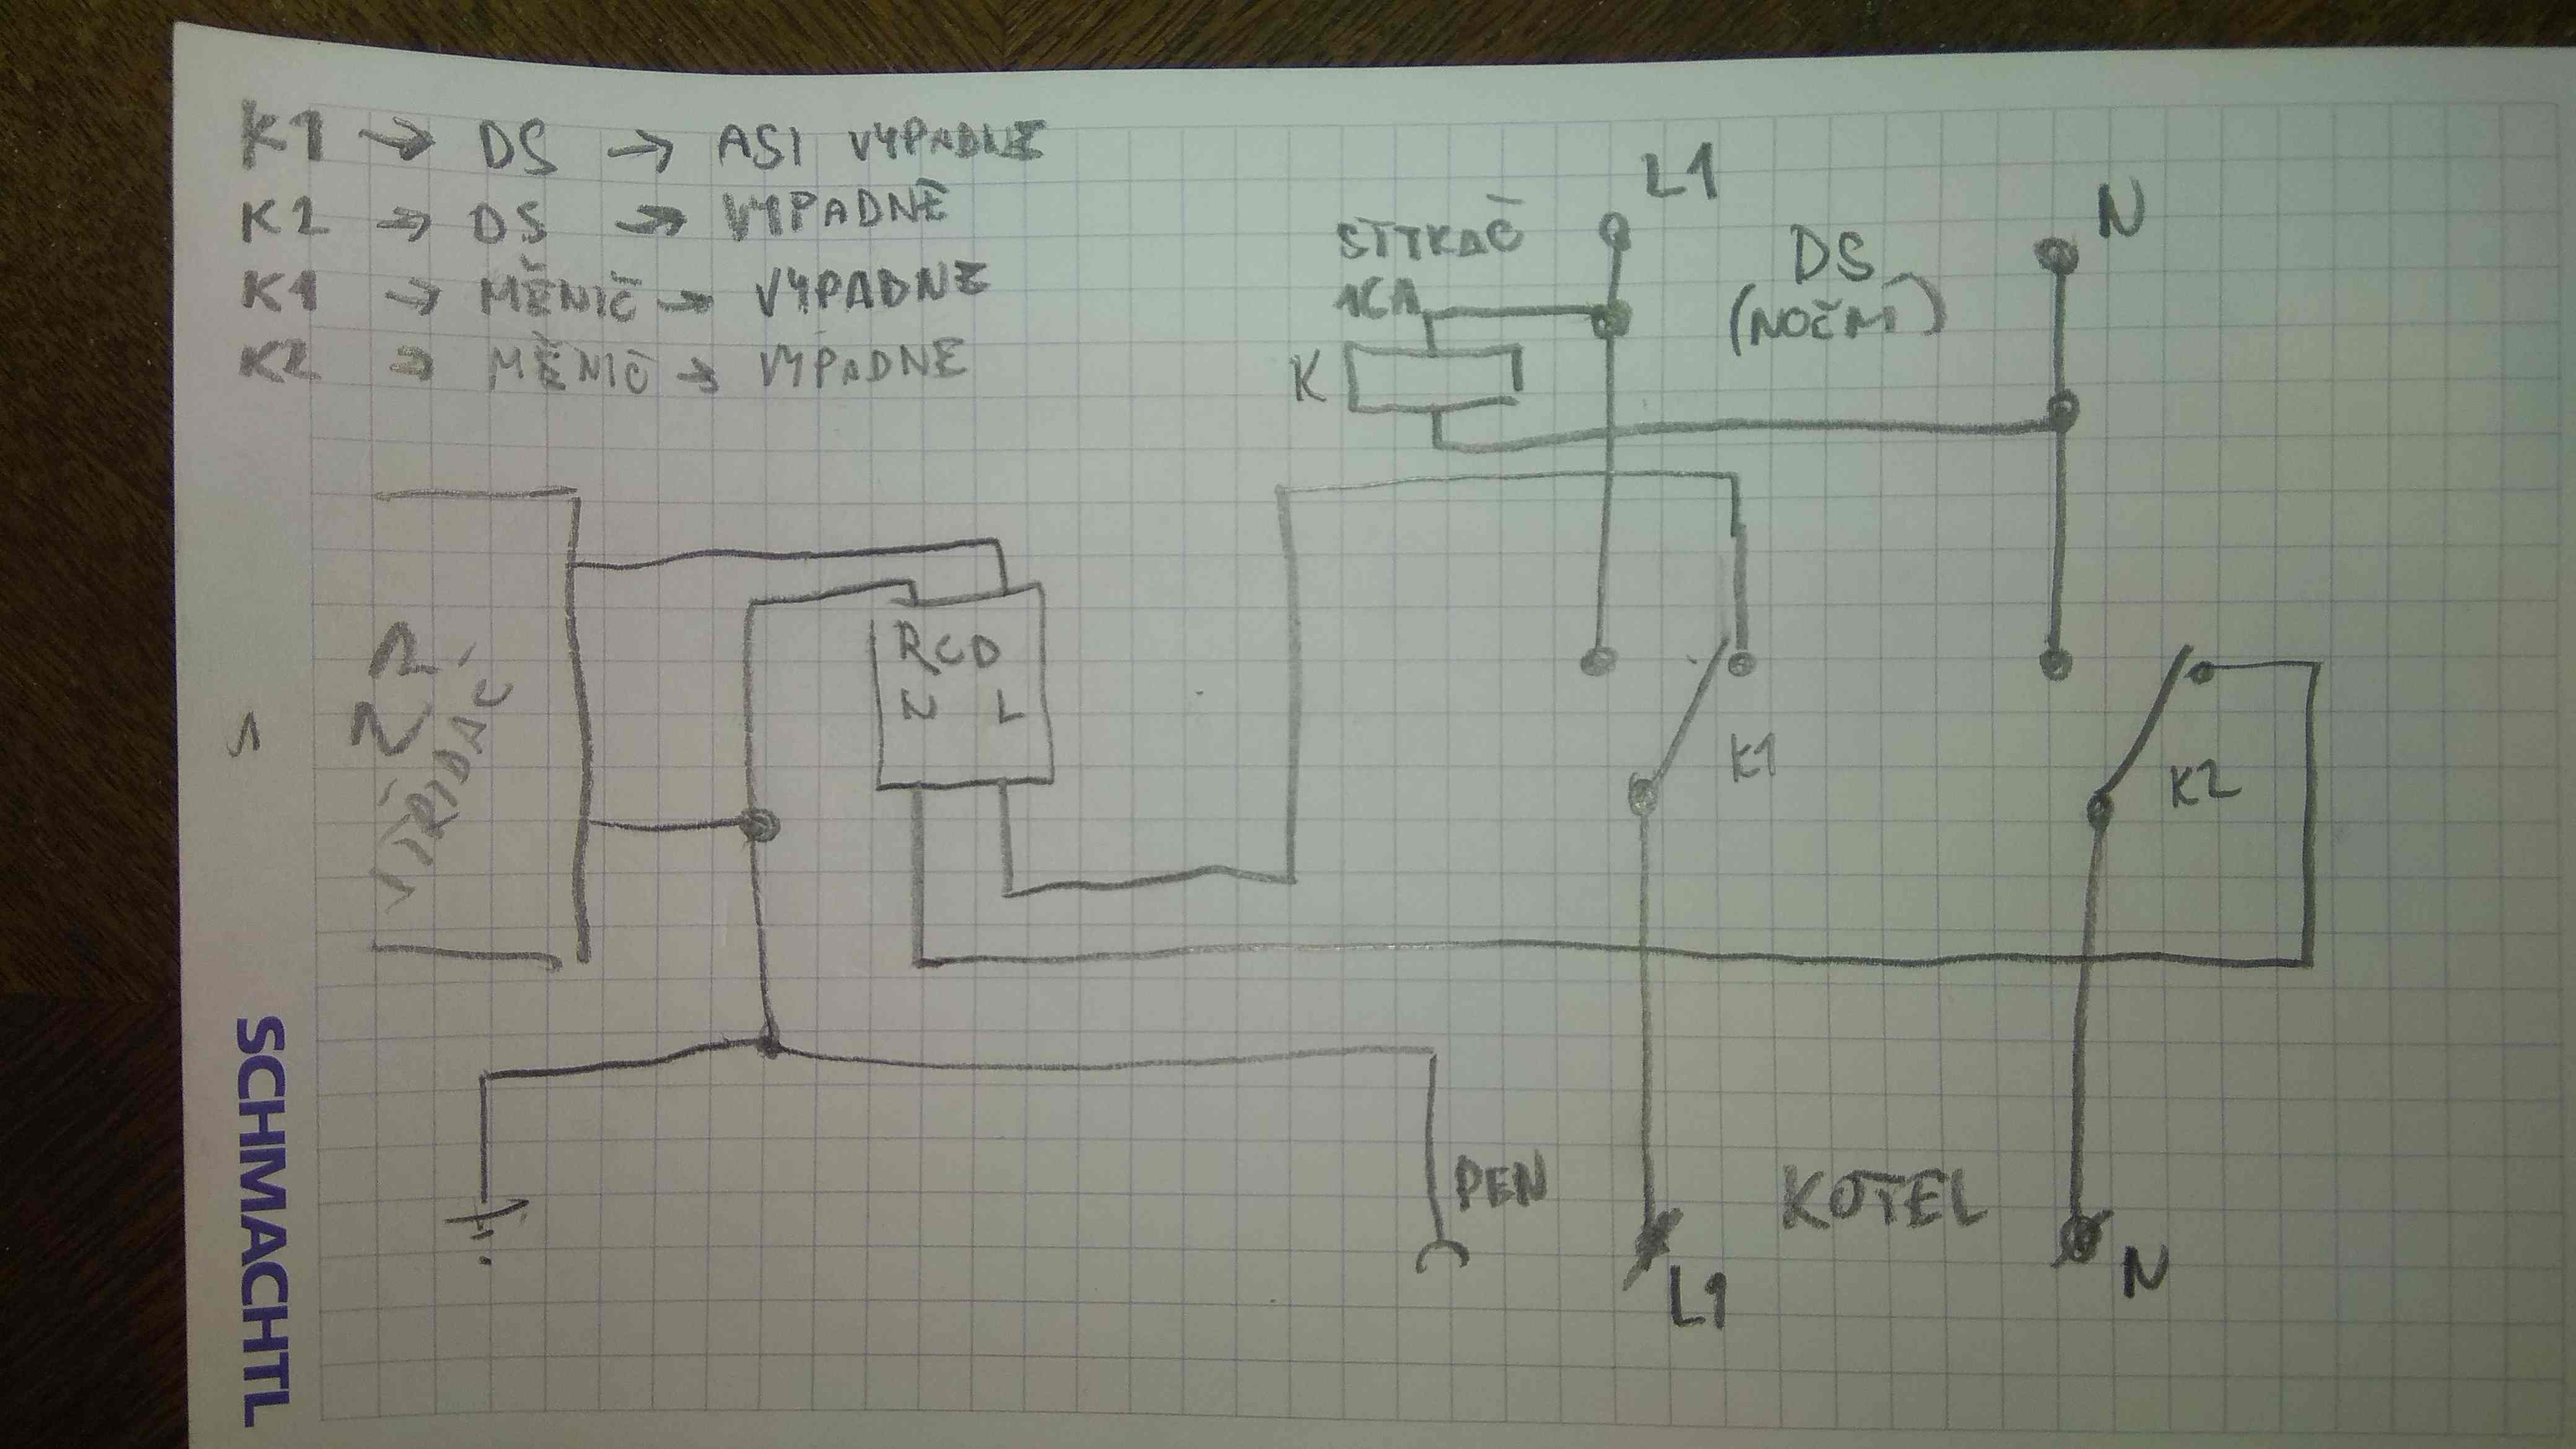 K1 → DS → ASI VYPADNE
K2 → DS → VYPADNE
K1 → MĚNIČ → VYPADNE
K2 → MĚNIČ → VYPADNE
L1
N
STYKAČ
16A
DS
(NOČNÍ)
K
RCD
N L
STŘÍDAČ
K1
K2
PEN
KOTEL
L1
N
SCHMACHTL